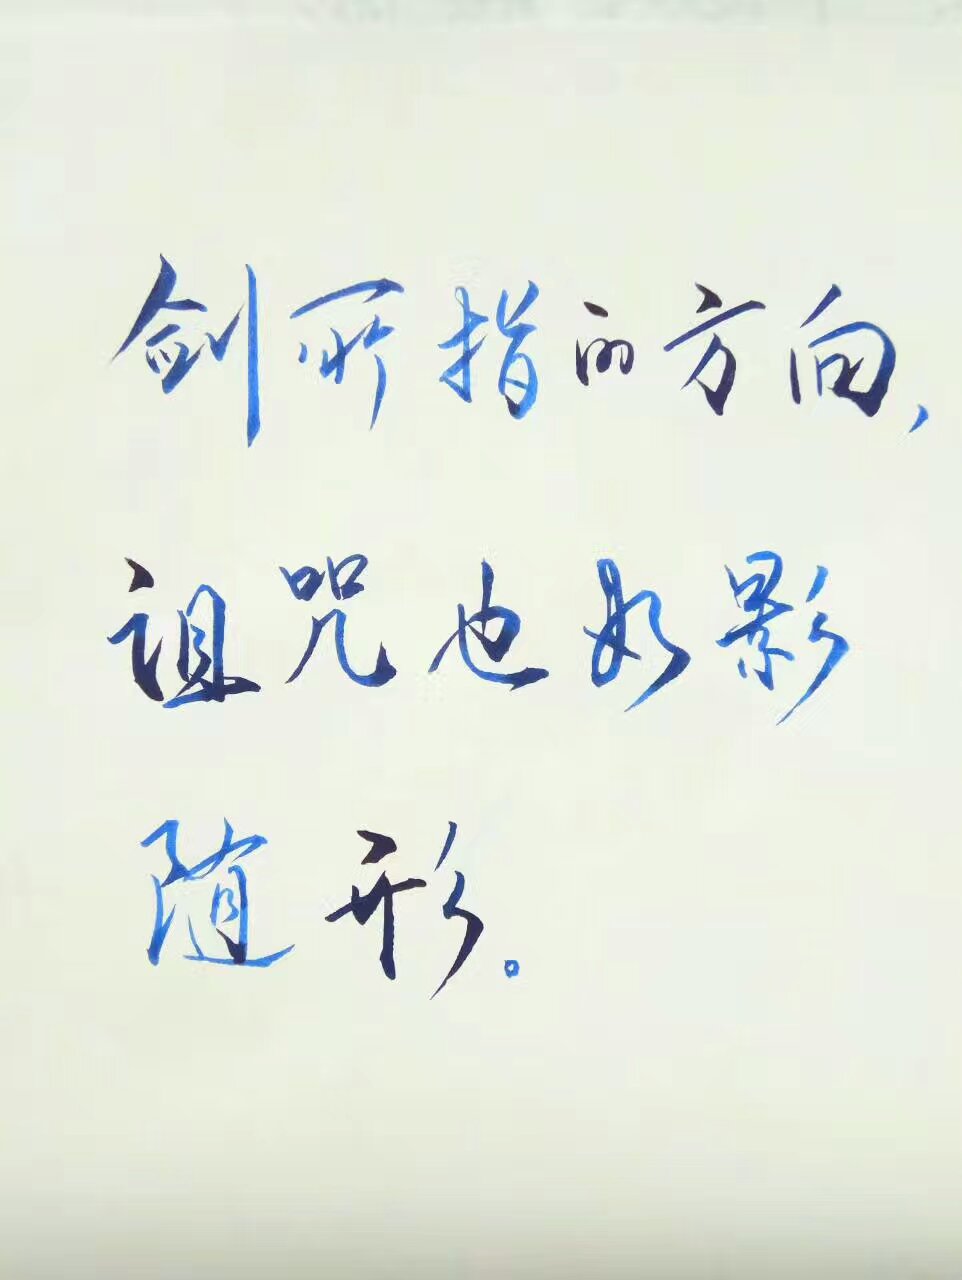 剑所指的方向，
诅咒也如影
随形。